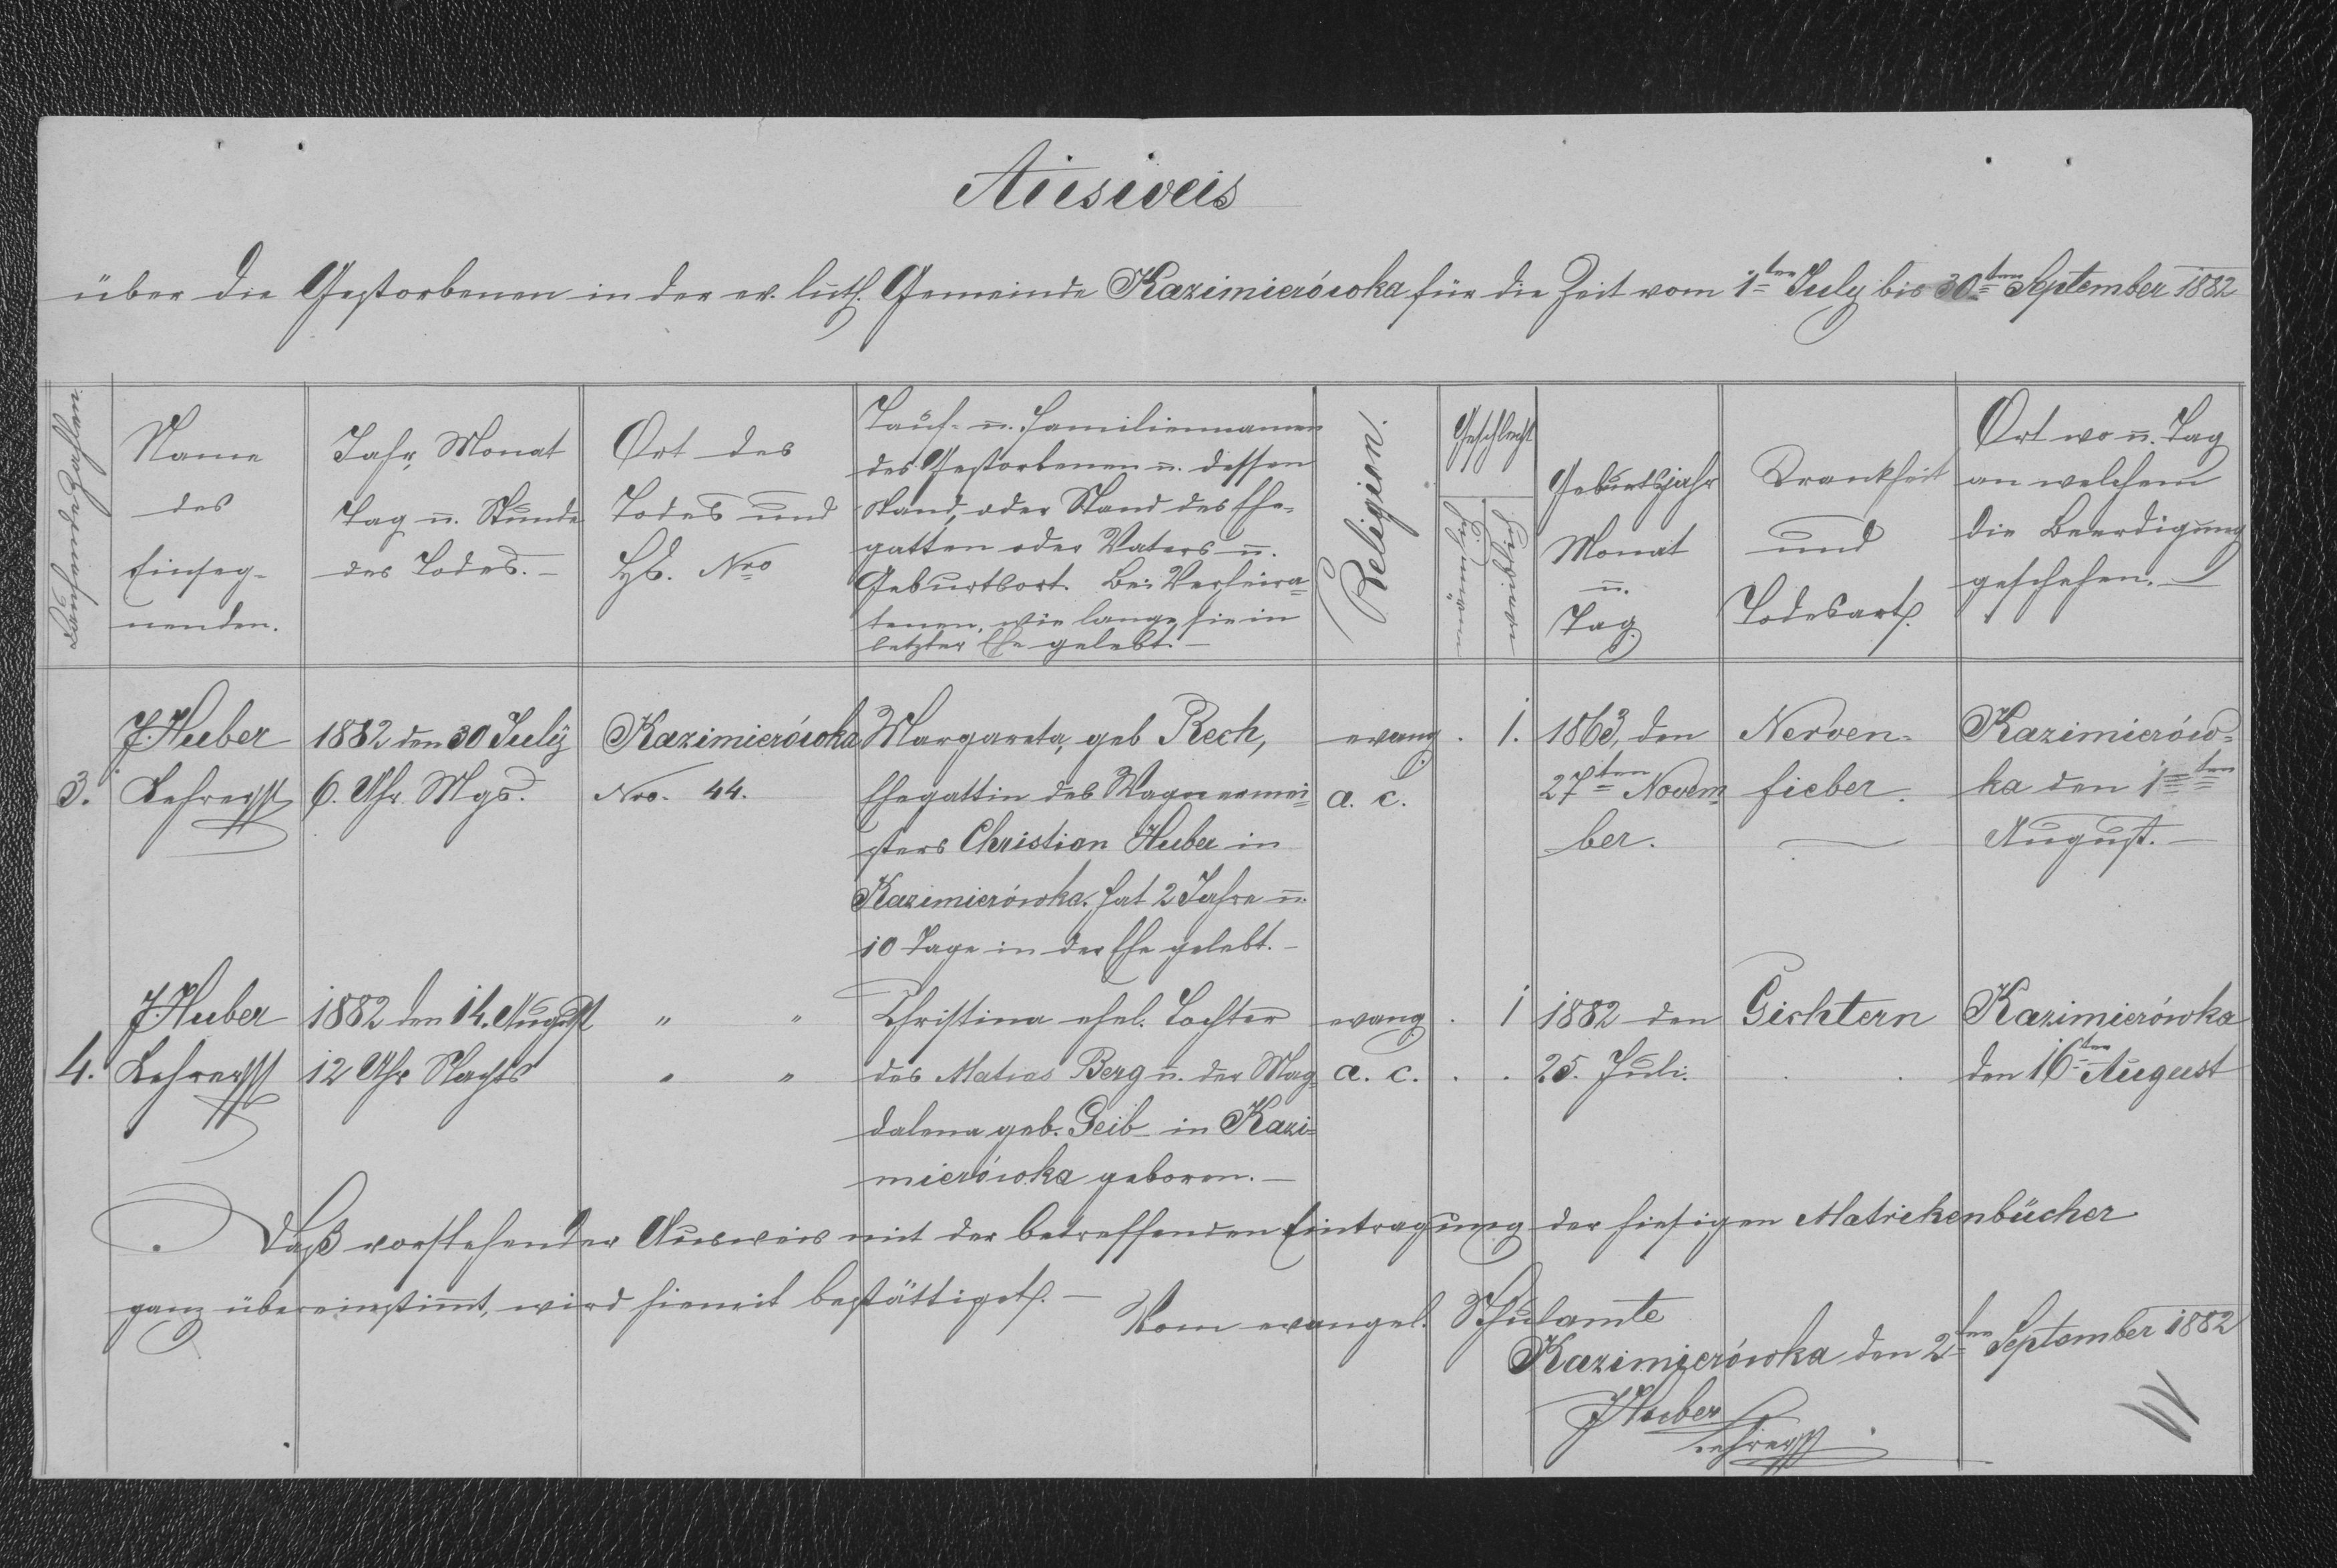 Ausweis
über die Gestorbenen in der ev. luth. Gemeinde Kazimierówka für die Zeit vom 1ten July bis 30ten September 1882
Name
des
Einseg-
nenden.
Jahr, Monat
Tag u. Stunde
des Todes.
Ort des
Todes und
Hs. Nro
Tauf- u. Familiennamen
des Gestorbenen u. dessen
Stand, oder Stand des Ehe-
gatten oder Vaters u.
Geburtsort. Bei Verheira-
tenen, wie lange sie in
letzter Ehe gelebt.
Religion.
Geschlecht
männ
weiblich
Geburtsjahr
Monat
u.
Tag
Krankheit
und
Todesart.
Ort wo u. Tag
an welchem
die Beerdigung
geschehen.
3.
J. Huber
Lehrer
1882 den 30 July
6. Uhr Mgs.
Kazimierówka
Nro. 44.
Margareta, geb Rech,
Ehegattin des Wagnermei-
sters Christian Huber in
Kazimierówka. hat 2 Jahre u.
10 Tage in der Ehe gelebt.
evang.
a. c.
1.
1863, den
27ten Novem-
ber.
Nerven-
fieber.
Kazimierów-
ka den 1ten
August.
4.
J. Huber
Lehrer
1882 den 14. August
12 Uhr Nachts
" "
" "
Christina ehel. Tochter
des Matias Berg u. der Mag-
dalena geb. Geib in Kazi-
mierówka geboren.
evang.
a. c.
1
1882 den
25. Juli.
Gichtern
Kazimierówka
den 16ten August
Daß vorstehender Ausweis mit der betreffenden Eintragung der hiesigen Matrikenbücher
ganz übereinstimt, wird hiemit bestättiget.
Vom evangel. Schulamte
Kazimierówka den 2ten September 1882
J Huber
Lehrer